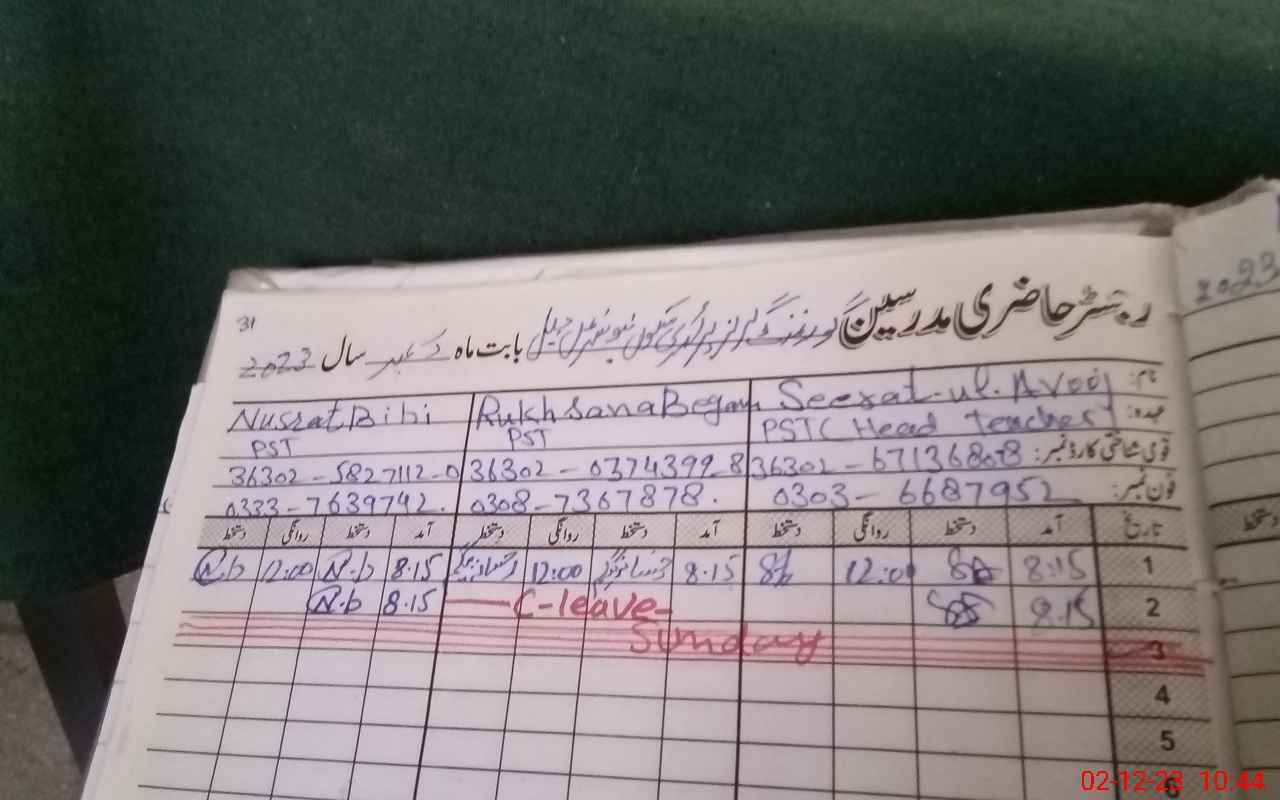 2023
31
رجسٹر حاضری مدرسین گورنمنٹ گرلز پرائمری سکول بابت ماہ دسمبر سال 2023
نام: Seerat-ul-Avooj Rukhsana Begam Nusrat Bibi
عہدہ: PST ( Head Teacher ) PST PST
قومی شناختی کارڈ نمبر: 36302 - 0374399 - 8 36302 - 5827112 - 0
فون نمبر: 0303 - 6687952 0308 - 7367878 . 0333 - 7639742 .
تاریخ آمد دستخط روانگی دستخط آمد دستخط روانگی دستخط آمد دستخط روانگی دستخط
1 8:15 12:00 8.15 12:00 8.15 N.b 12:00 N.b
2 8.15 C-leave 8.15 N.b
3 Sunday
4
5
6
02-12-23 10:44